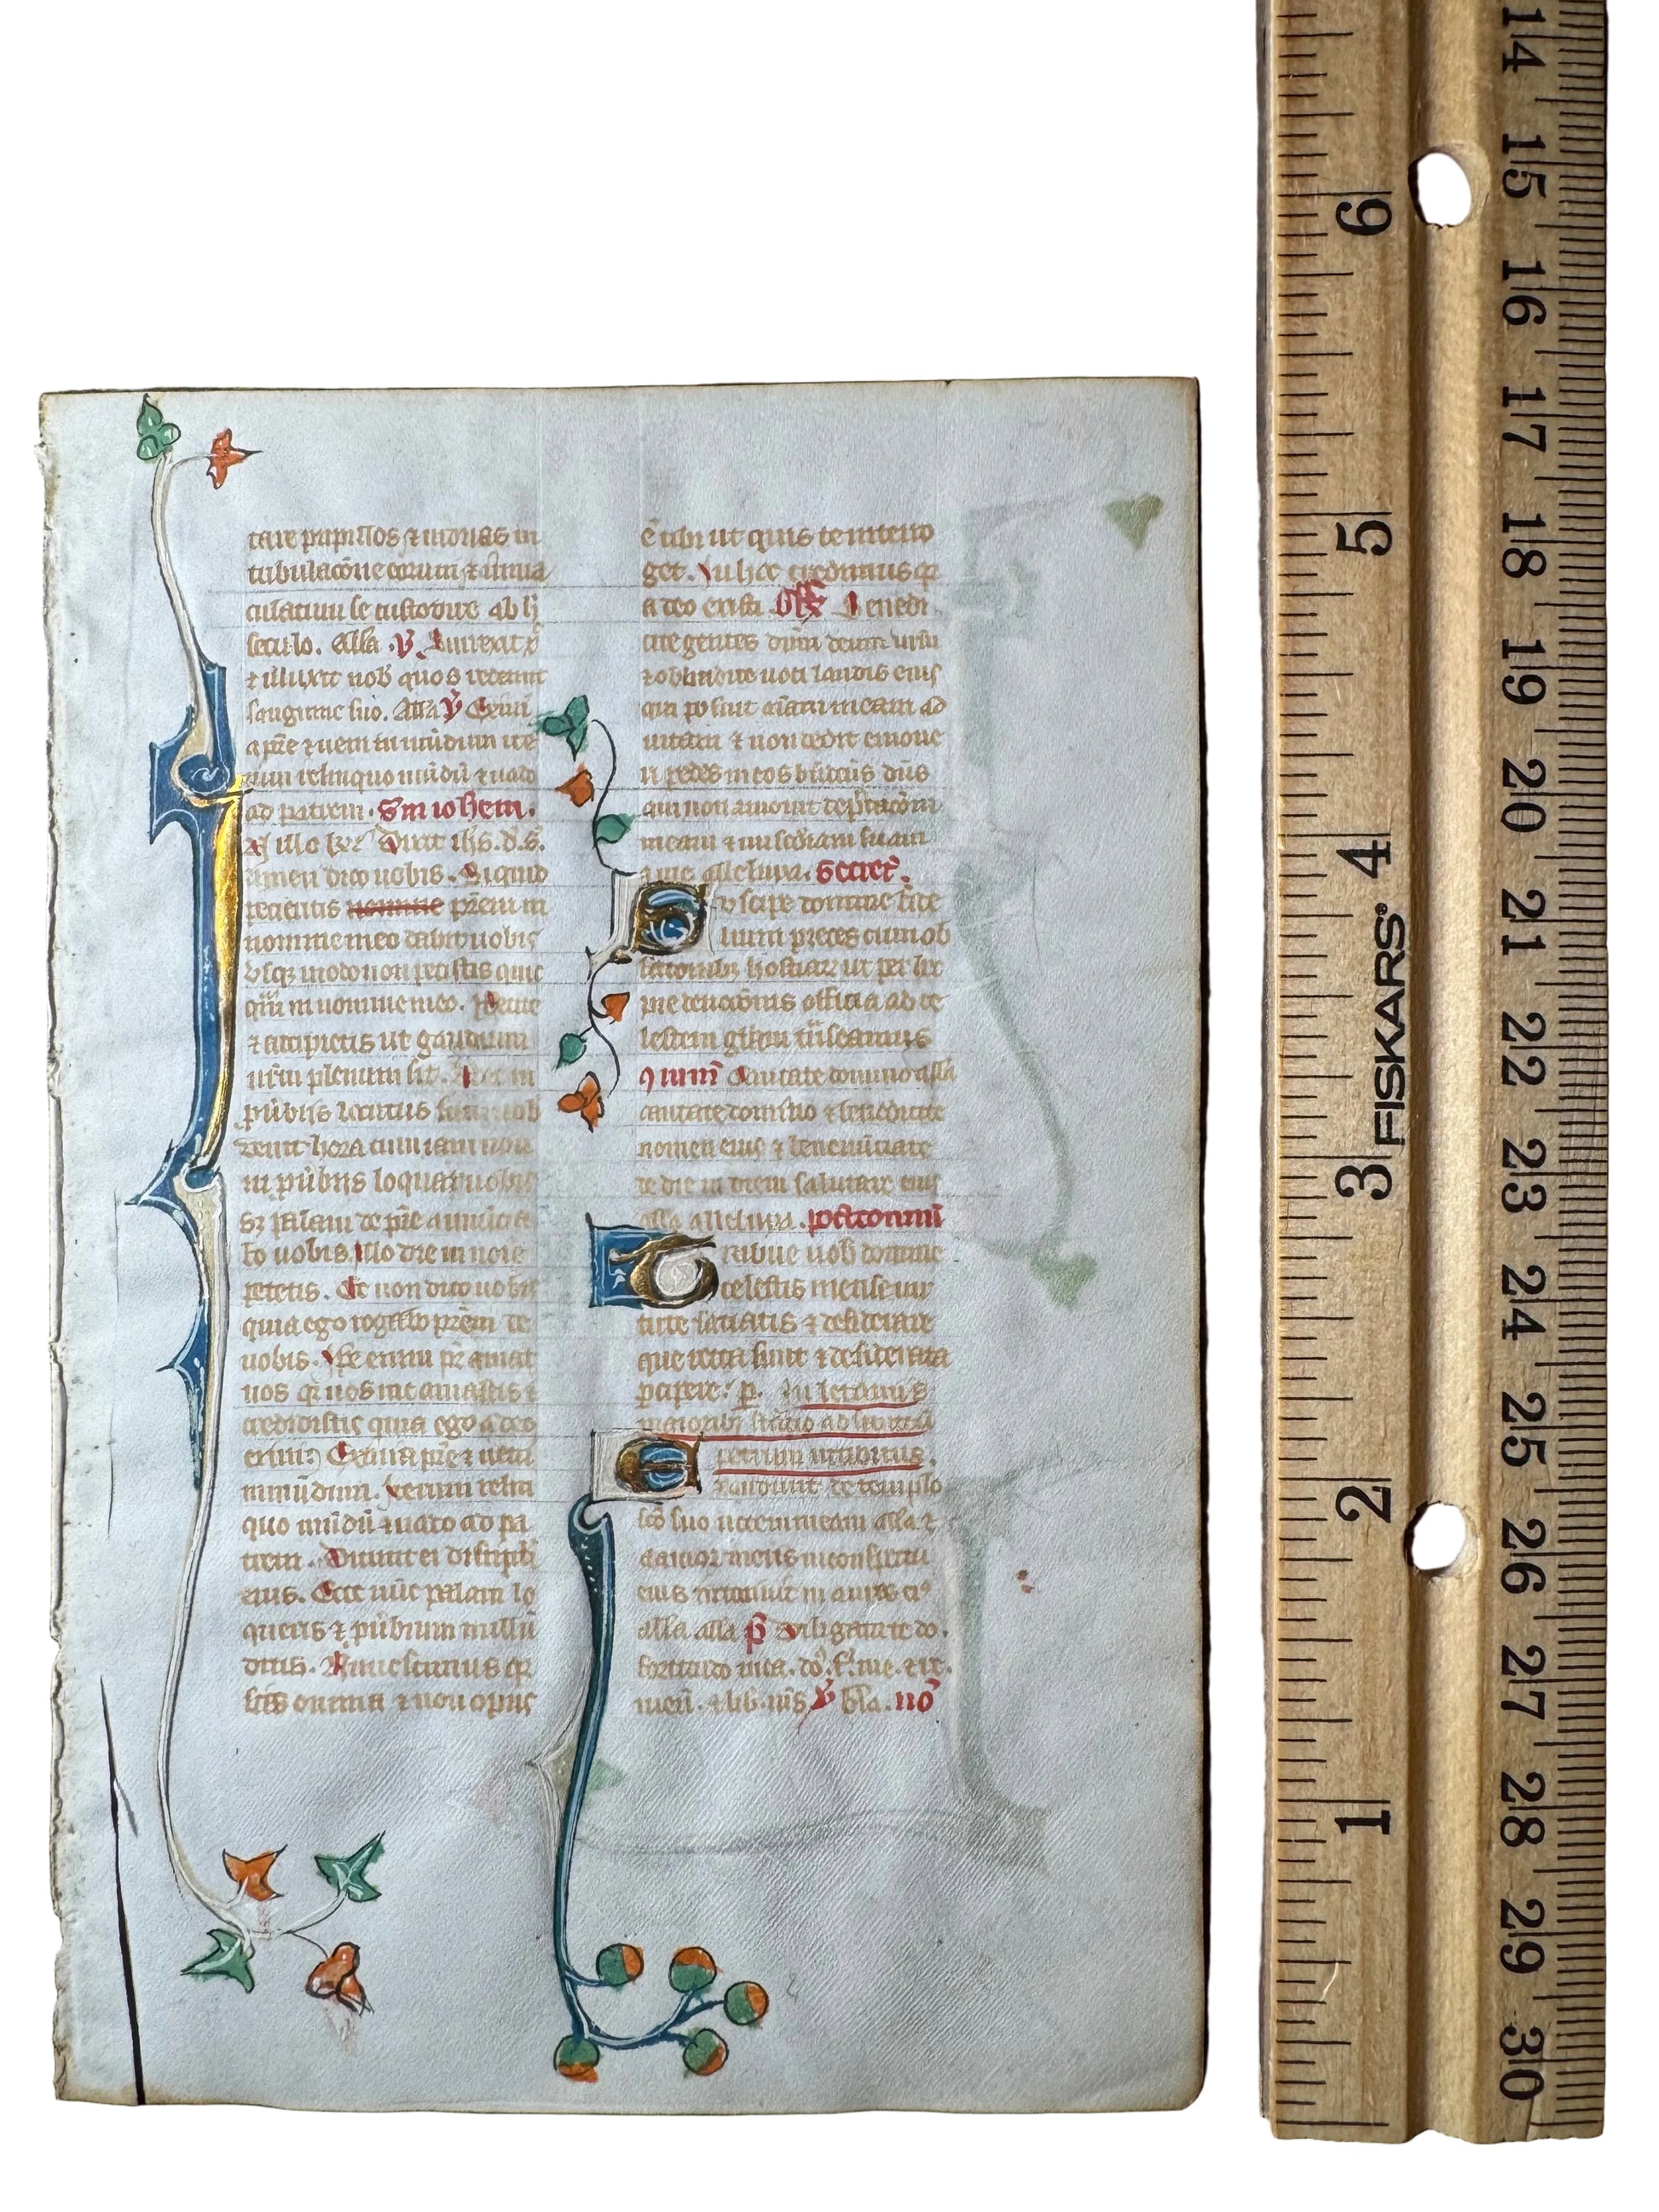 tare pupillos & viduas in
tribulacōne eorum & īmma
culatum se custodire ab h̄
seculo. Alla. ℣. Surrexit x̄
& illuxit nob̄ quos redemit
sanguine suo. Alla ℣ Exiui
a p̄re & ueni in mūdum ite
rum relinquo mūdū & uado
ad patrem. Sm ioh̄em.
In illo tp̄r Dixit ih̄s. d. s.
amen dico uobis. Siquid
petieritis nomine p̄rem in
nomine meo dabit uobis
vsq; modo non petistis quic
q̄m in nomine meo. Petite
& accipietis ut gaudium
ur̄m plenum sit. Hec in
p̄ubijs locutus sum uob
venit hora cum iam non
in p̄ubijs loquar uobis
sʒ palam de p̄re annūcia
bo uobis. Illo die in noīe
petetis. Et non dico uobis
quia ego rogabo p̄rem de
uobis. Ipse enim p̄r amat
uos qʳ uos me amastis &
credidistis quia ego a deo
exiui Exiui a p̄re & ueni
in mūdum. Iterum relin
quo mūdū & uado ad pa
trem. Dicunt ei discipli
eius. Ecce nūc palam lo
queris & p̄ubium nullū
dicis. Nunc scimus qʳ
scis omnia & non opus
ē tibi ut quis te interro
get. In hoc credimus qʳ
a deo existi. Off̄ Benedi
cite gentes dūm deum nr̄m
& obaudite uoci laudis eius
qui posuit aīam meam ad
uitam & non dedit cōmoue
ri pedes meos b̄ndictus dūs
qui non amouit dep̄cacōm
meam & mīscd̄iam suam
a me alleluya. Secret̄.
Suscipe domine fide
lium preces cum ob
lationibʒ hostiaʀ ut per hec
pie deuocōnis officia ad ce
lestem gl̄iam tn̄seamus
9mun̄ Cantate domino alla
cantate domino & benedicite
nomen eius & bene nūciate
de die in diem salutare eius
alla alleluya. postcommū
Tribue nob̄ domine
celestis mense uir
tute saciatis & desiderare
que recta sunt & desiderata
p̄cipere. p̄. In letaniis
maioribʒ statio ad sanctū
petrum introitus.
Exaudiuit de templo
sc̄o suo uocem meam alla &
clamor meus in conspectu
eius introiuit in aures ei9
alla alla p̄ Diligam te do.
fortitudo mea. do. f. me. & re.
meū. & lib. m̄s ℣ Gl̄a. no
14 15 16 17 18 19 20 21 22 23 24 25 26 27 28 29 30
6 5 4 3 2 1
FISKARS®